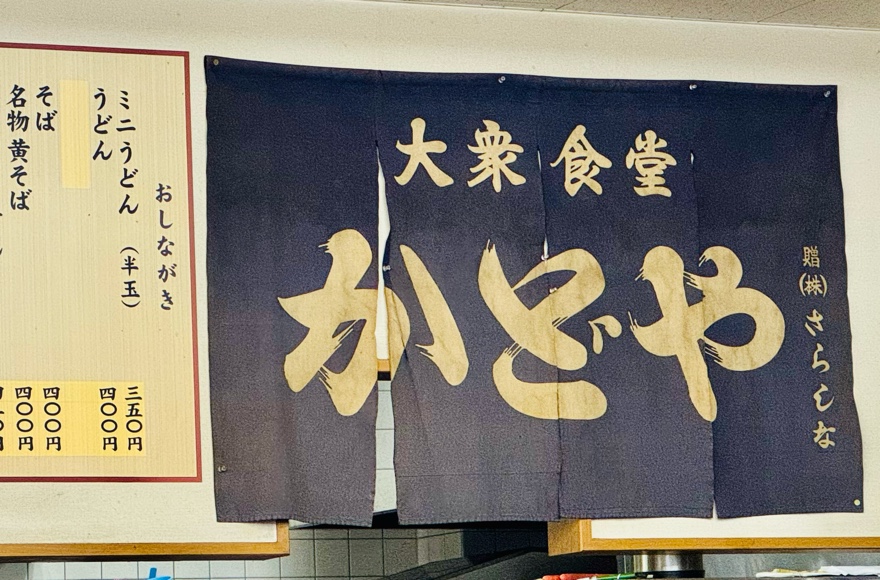 大衆食堂
かどや
贈(株)さらしな
おしながき
ミニうどん (半玉) 三五〇円
うどん 四〇〇円
そば 四〇〇円
名物黄そば 四〇〇円